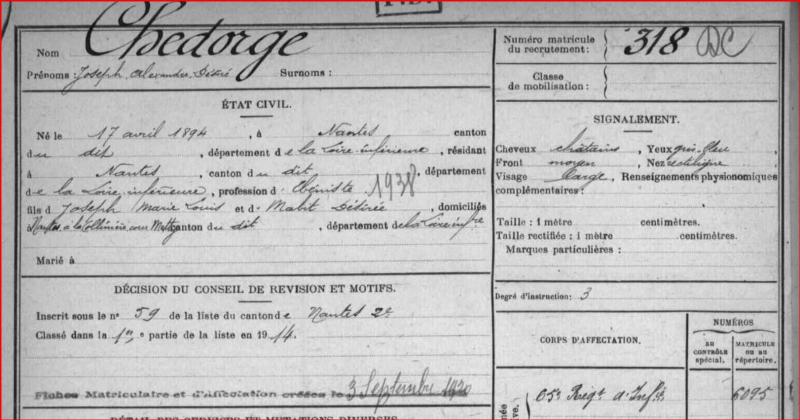 Nom Chedorge
Prénoms: Joseph Alexandre Désiré Surnoms:
ÉTAT CIVIL.
Né le 17 avril 1894, à Nantes canton
du dit, département de la Loire-inférieure, résidant
à Nantes, canton du dit, département
de la Loire inférieure, profession d'ébéniste 1938
fils de Joseph Marie Louis et de Mabit Désirée, domiciliés
Nantes à la Collinière canton du dit, département de la Loire infre
Marié à
DÉCISION DU CONSEIL DE REVISION ET MOTIFS.
Inscrit sous le n° 59 de la liste du canton de Nantes 2e
Classé dans la 1re partie de la liste en 1914.
Fiches Matriculaire et d'Affectation créées le 3 Septembre 1920
DÉTAIL DES SERVICES ET MUTATIONS DIVERSES
Numéro matricule du recrutement: 318 DC
Classe
de mobilisation:
SIGNALEMENT.
Cheveux châtains, Yeux gris-bleu
Front moyen, Nez rectiligne
Visage large, Renseignements physionomiques
complémentaires:
Taille: 1 mètre centimètres.
Taille rectifiée: 1 mètre centimètres.
Marques particulières:
Degré d'instruction: 3
CORPS D'AFFECTATION.
NUMÉROS
AU CONTRÔLE spécial.
MATRICULE OU AU répertoire.
65e Régt d'Inftie
6095